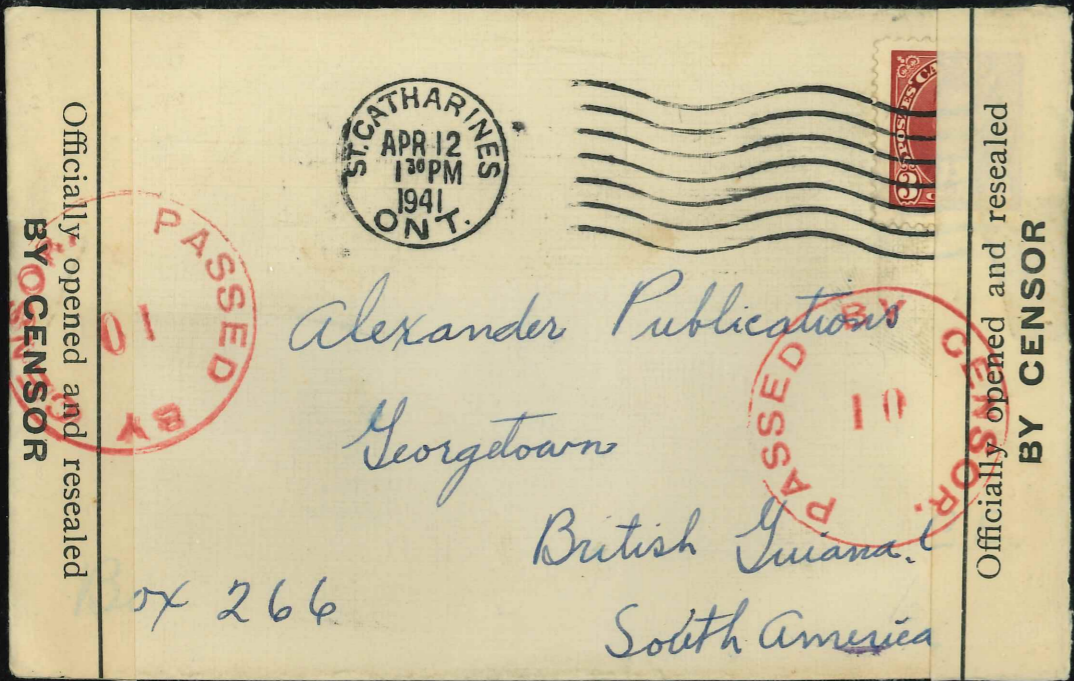 Officially opened and resealed
BY CENSOR
PASSED BY CENSOR.
10
ST. CATHARINES
APR 12
1 30 PM
1941
ONT.
POSTES CA
3
Alexander Publications
Georgetown
British Guiana.
South America
Box 266
PASSED BY CENSOR.
10
Officially opened and resealed
BY CENSOR